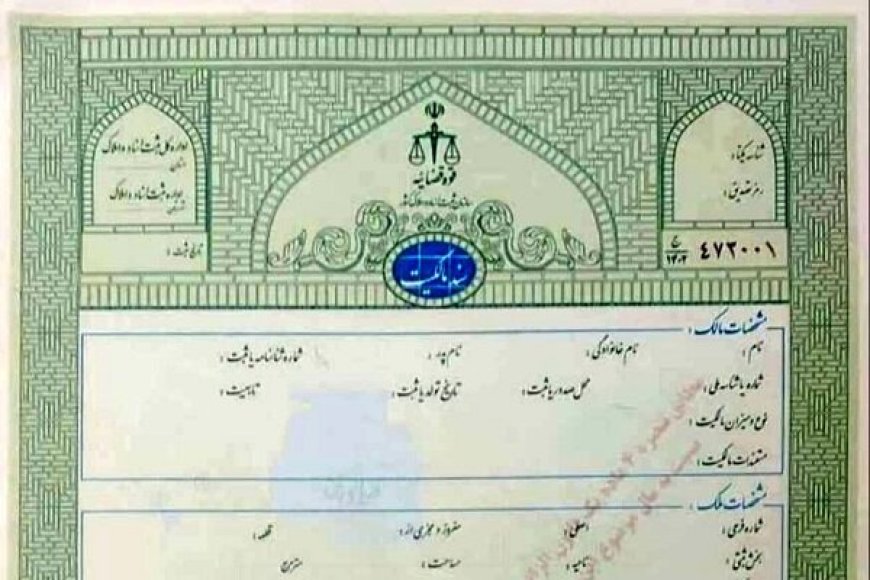 قوه قضائیه
سازمان ثبت اسناد و املاک کشور
سند مالکیت
شناسه یکتا:
رمز تصدیق:
۴۷۲۰۰۱
اداره کل ثبت اسناد و املاک
استان
اداره ثبت اسناد و املاک
تاریخ ثبت:
مشخصات مالک:
نام: نام خانوادگی: نام پدر: شماره شناسنامه یا ثبت:
شماره یا شناسه ملی: محل صدور یا ثبت: تاریخ تولد یا ثبت: تابعیت:
نوع و میزان مالکیت:
مستندات مالکیت:
مشخصات ملک:
شماره فرعی: اصلی: مفروز و مجزی از: قطعه:
بخش ثبتی: ناحیه: مساحت: مترمربع